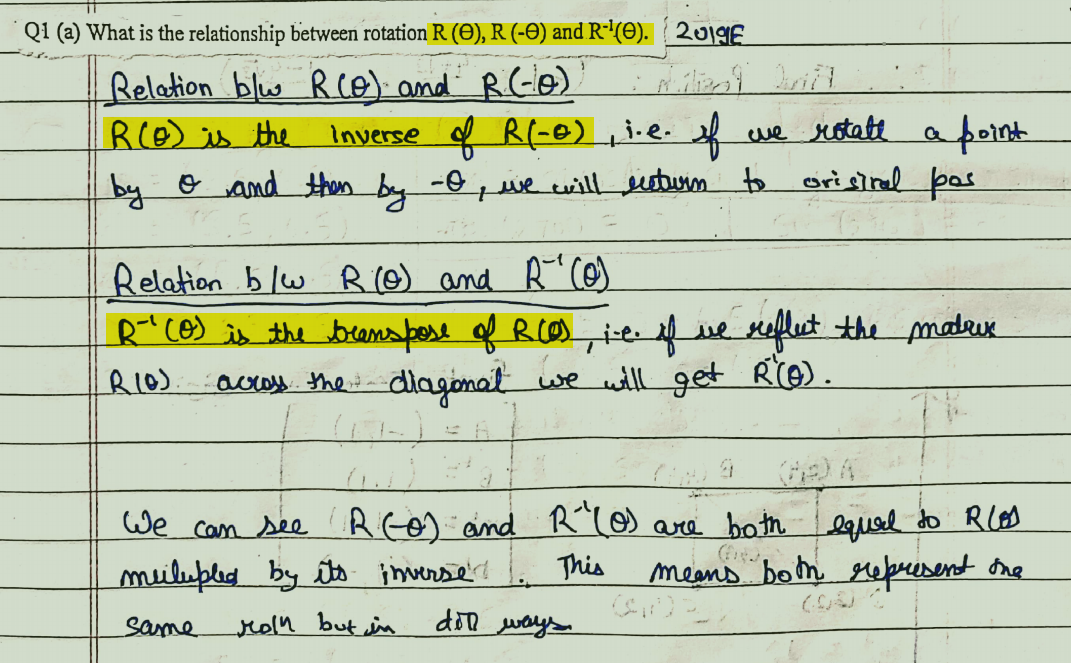 Q1 (a) What is the relationship between rotation R (Θ), R (-Θ) and R⁻¹(Θ). 2019E
Relation b/w R(θ) and R(-θ)
R(θ) is the inverse of R(-θ), i.e. if we rotate a point
by θ and then by -θ, we will return to original pos
Relation b/w R(θ) and R⁻¹(θ)
R⁻¹(θ) is the transpose of R(θ), i.e. if we reflect the matrix
R(θ) across the diagonal we will get R⁻¹(θ).
We can see R(-θ) and R⁻¹(θ) are both equal to R(θ)
mulupled by its inverse. This means both represent the
same roln but in diff ways